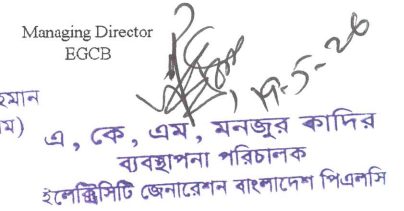 Managing Director
EGCB
১৭-5-26
হমান
ম)
এ, কে, এম, মনজুর কাদির
ব্যবস্থাপনা পরিচালক
ইলেক্ট্রিসিটি জেনারেশন বাংলাদেশ পিএলসি